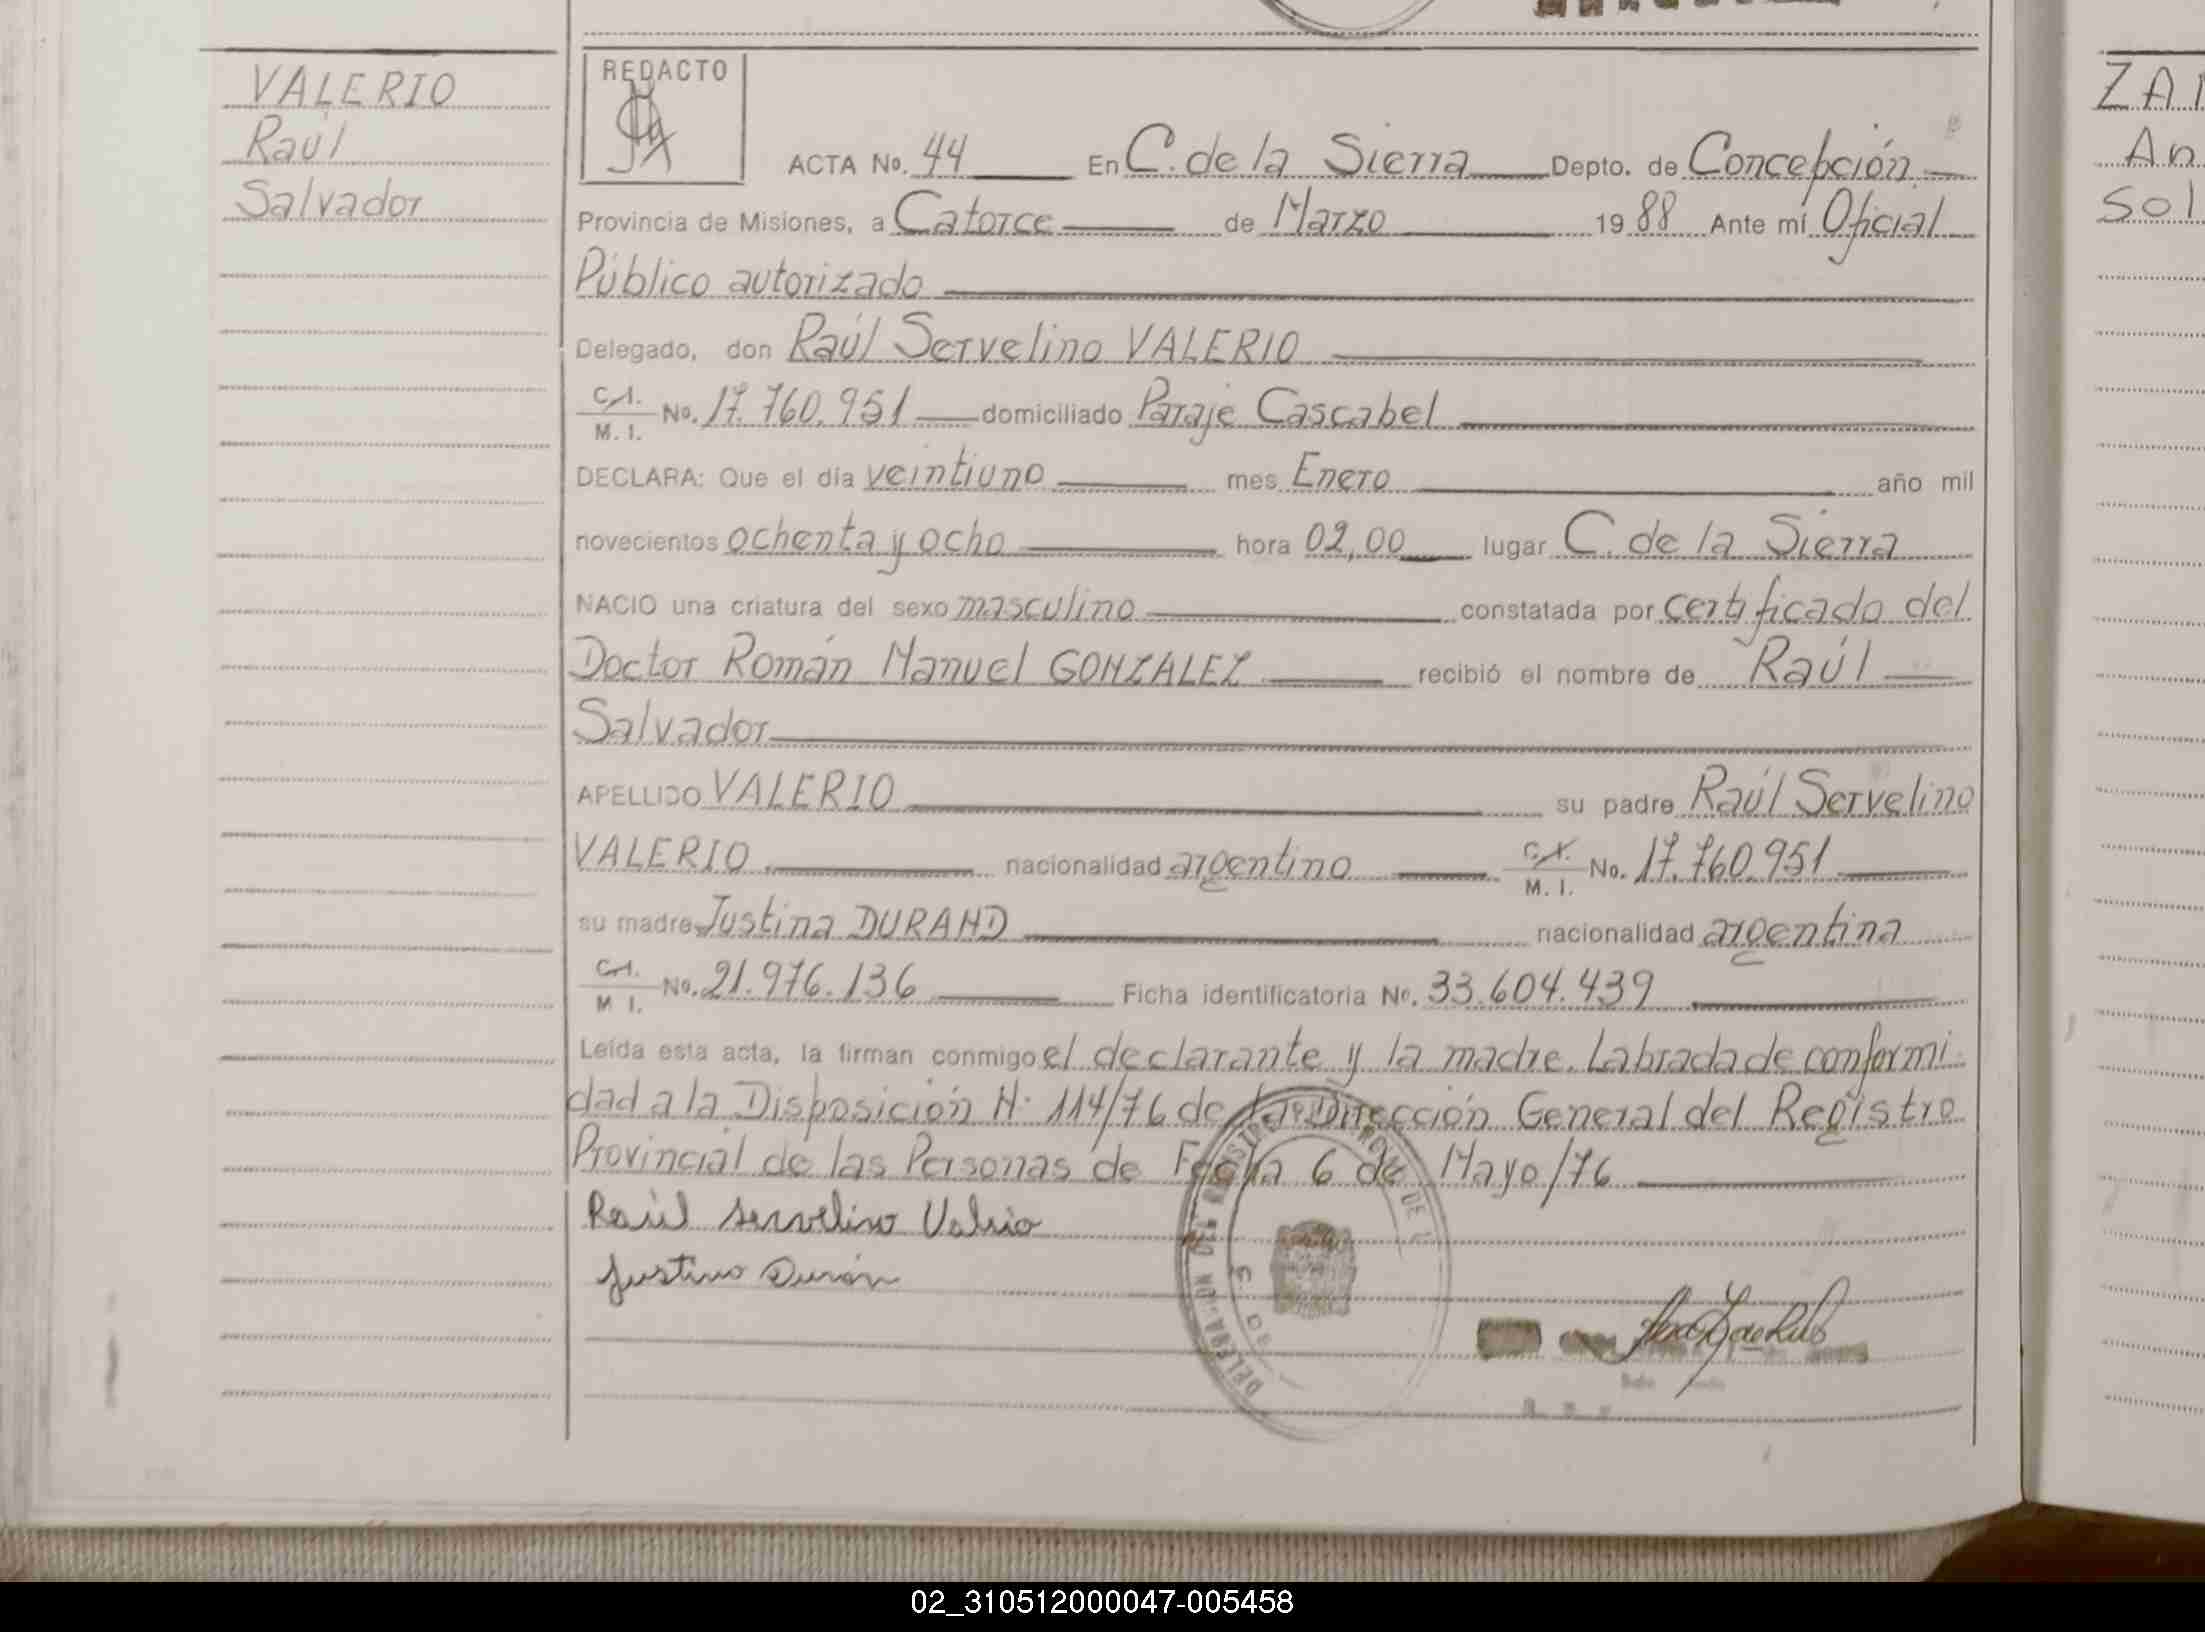 VALERIO
Raúl
Salvador
REDACTO
ACTA No. 44 En C. de la Sierra Depto. de Concepción
Provincia de Misiones, a Catorce de Marzo 1988 Ante mí Oficial
Público autorizado
Delegado, don Raúl Servelino VALERIO
C.I. M. I. No. 17.760.951 domiciliado Paraje Cascabel
DECLARA: Que el día veintiuno mes Enero año mil
novecientos ochenta y ocho hora 02,00 lugar C. de la Sierra
NACIO una criatura del sexo masculino constatada por certificado del
Doctor Román Manuel GONZALEZ recibió el nombre de Raúl
Salvador
APELLIDO VALERIO su padre Raúl Servelino
VALERIO nacionalidad argentino C.I. M. I. No. 17.760.951
su madre Justina DURAND nacionalidad argentina
C.I. M I. No. 21.976.136 Ficha identificatoria No. 33.604.439
Leída esta acta, la firman conmigo el declarante y la madre. Labrada de conformi-
dad a la Disposición N· 114/76 de la Dirección General del Registro
Provincial de las Personas de Fecha 6 de Mayo/76
Raúl Servelino Valerio
Justina Durán
ZA
An
Sol
02_310512000047-005458